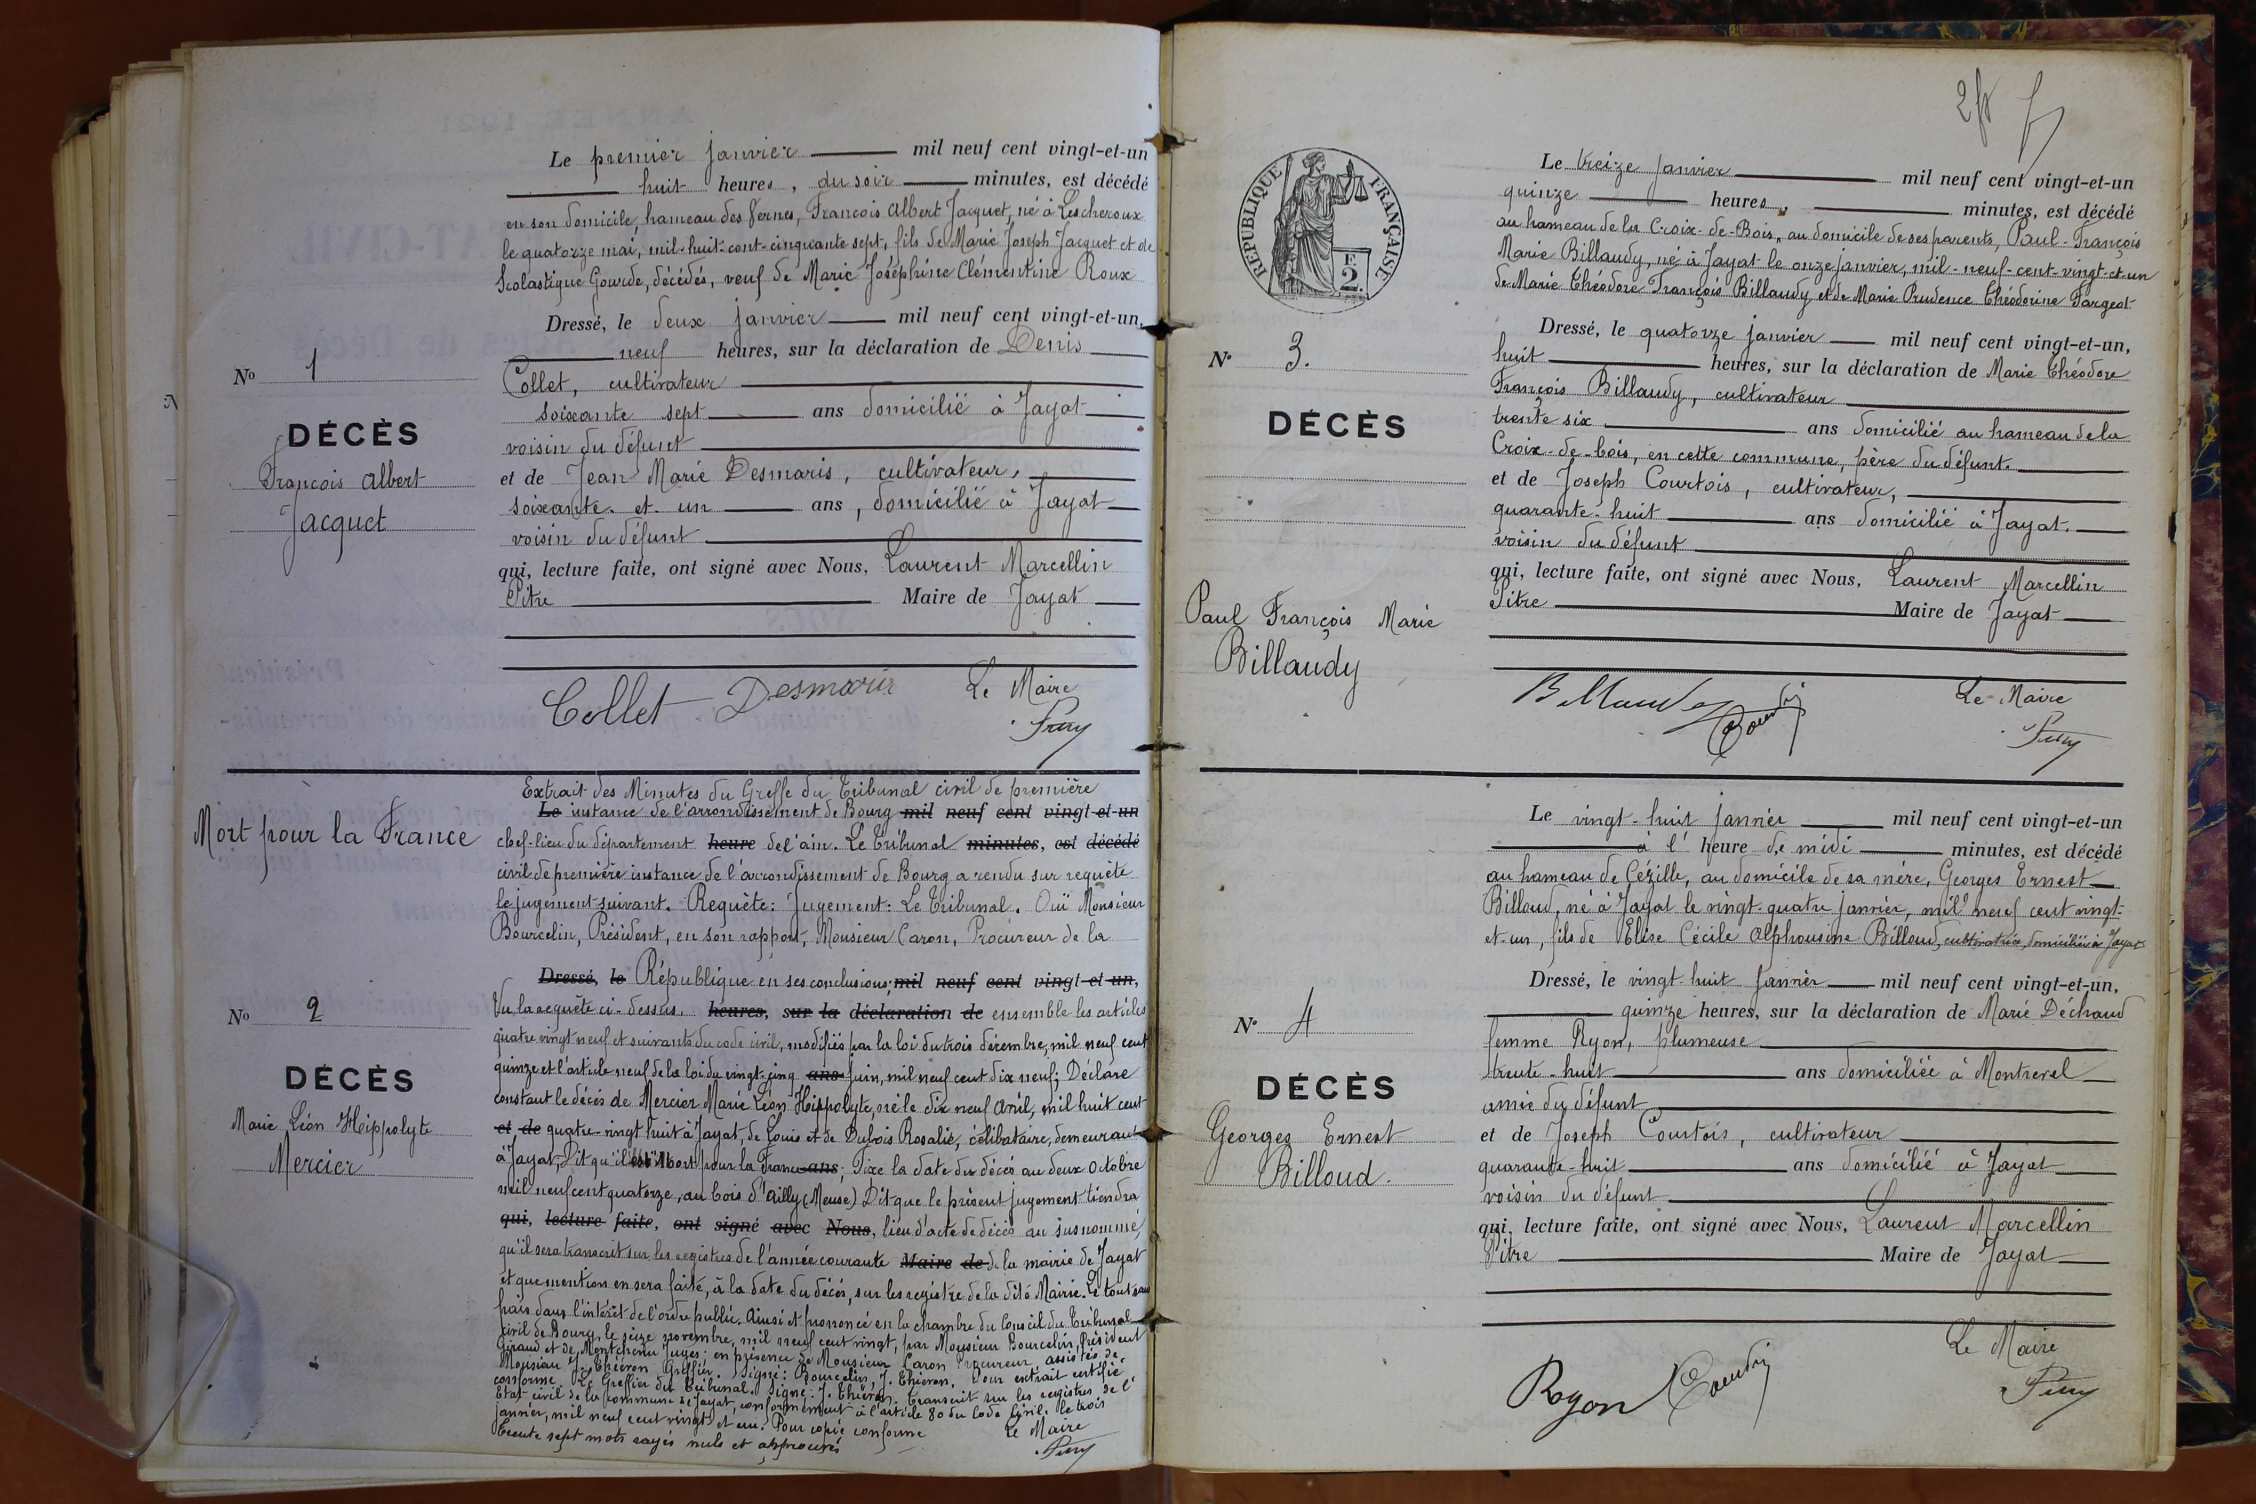 Le premier janvier mil neuf cent vingt-et-un
huit heures, du soir minutes, est décédé
en son domicile, hameau des Vernes, François Albert Jacquet, né à Lescheroux
le quatorze mai, mil-huit-cent-cinquante sept, fils de Marie Joseph Jacquet et de
Scolastique Gourde, décédés, veuf de Marie Joséphine Clémentine Roux
Dressé, le deux janvier mil neuf cent vingt-et-un,
neuf heures, sur la déclaration de Denis
Collet, cultivateur
soixante sept ans domicilié à Jayat
voisin du défunt
et de Jean Marie Desmaris, cultivateur,
soixante et un ans, domicilié à Jayat
voisin du défunt
qui, lecture faite, ont signé avec Nous, Laurent Marcellin
Pitre Maire de Jayat
No 1
DÉCÈS
François Albert
Jacquet
Collet Desmaris Le Maire
Mort pour la France
No 2
DÉCÈS
Marie Léon Hippolyte
Mercier
Extrait des Minutes du Greffe du Tribunal civil de première
Le instance de l'arrondissement de Bourg mil neuf cent vingt-et-un
chef-lieu du département heure de l'ain. Le Tribunal minutes, est décédé
civil de première instance de l'arrondissement de Bourg a rendu sur requête
le jugement suivant. Requête: Jugement: Le Tribunal. Ouï Monsieur
Bourcelin, Président, en son rapport, Monsieur Caron, Procureur de la
Dressé, le République en ses conclusions; mil neuf cent vingt-et-un,
Vu la requête ci-dessus. heures, sur la déclaration de ensemble les articles
quatre vingt neuf et suivants du code civil, modifiés par la loi du trois décembre, mil neuf cent
quinze et l'article neuf de la loi du vingt-cinq ans juin, mil neuf cent dix neuf; Déclare
constant le décès de Mercier Marie Léon Hippolyte, né le dix neuf Avril, mil huit cent
et de quatre-vingt huit à Jayat, de Louis et de Dubois Rosalie, célibataire, demeurant
à Jayat; Dit qu'il est "Mort pour la France ans; Fixe la date du décès au deux Octobre
mil neuf cent quatorze, au bois d'Ailly (Meuse) Dit que le présent jugement tiendra
qui, lecture faite, ont signé avec Nous, lieu d'acte de décès au susnommé,
qu'il sera transcrit sur les registres de l'année courante Maire de de la mairie de Jayat
et que mention en sera faite, à la date du décès, sur les registre de la dite Mairie. Le tout sans
frais dans l'intérêt de l'ordre public. Ainsi et prononcé en la chambre du Conseil du Tribunal
civil de Bourg, le seize novembre, mil neuf cent vingt, par Monsieur Bourcelin, Président
Giraud et de Montchenu Juges: en présence de Monsieur Caron Procureur, assistés de
Monsieur J. Thiévon Greffier. Signé: Bourcelin, J. Thiévon. Pour extrait certifié
conforme Le Greffier du Tribunal. Signé: J. Thiévon. Transcrit sur les registres de l'
Etat-civil de la commune de Jayat, conformément à l'article 80 du Code Civil. le trois
janvier, mil neuf cent vingt et un. Pour copie conforme Le Maire
Trente sept mots rayés nuls et approuvés
REPUBLIQUE FRANÇAISE
F.
2.
Le treize janvier mil neuf cent vingt-et-un
quinze heures, minutes, est décédé
au hameau de la Croix-de-Bois, au domicile de ses parents, Paul-François
Marie Billaudy, né à Jayat le onze janvier, mil-neuf-cent-vingt-et-un
de Marie Théodore François Billaudy et de Marie Prudence Théodorine Fargeot
Dressé, le quatorze janvier mil neuf cent vingt-et-un,
huit heures, sur la déclaration de Marie Théodore
François Billaudy, cultivateur
trente six ans domicilié au hameau de la
Croix-de-bois, en cette commune, père du défunt.
et de Joseph Courtois, cultivateur,
quarante-huit ans domicilié à Jayat.
voisin du défunt
qui, lecture faite, ont signé avec Nous, Laurent Marcellin
Pitre Maire de Jayat
No 3.
DÉCÈS
Paul François Marie
Billaudy
Billaudy Le Maire
Le vingt-huit janvier mil neuf cent vingt-et-un
à l' heure de midi minutes, est décédé
au hameau de Cézille, au domicile de sa mère, Georges Ernest
Billoud, né à Jayat le vingt-quatre janvier, mil neuf cent vingt-
et-un, fils de Elise Cécile Alphonsine Billoud, cultivatrice, domiciliée à Jayat
Dressé, le vingt huit janvier mil neuf cent vingt-et-un,
quinze heures, sur la déclaration de Marie Déchaud
femme Ryon, plumeuse
trente-huit ans domiciliée à Montrevel
amie du défunt
et de Joseph Courtois, cultivateur
quarante-huit ans domicilié à Jayat
voisin du défunt
qui, lecture faite, ont signé avec Nous, Laurent Marcellin
Pitre Maire de Jayat
No 4
DÉCÈS
Georges Ernest
Billoud.
Royon Le Maire